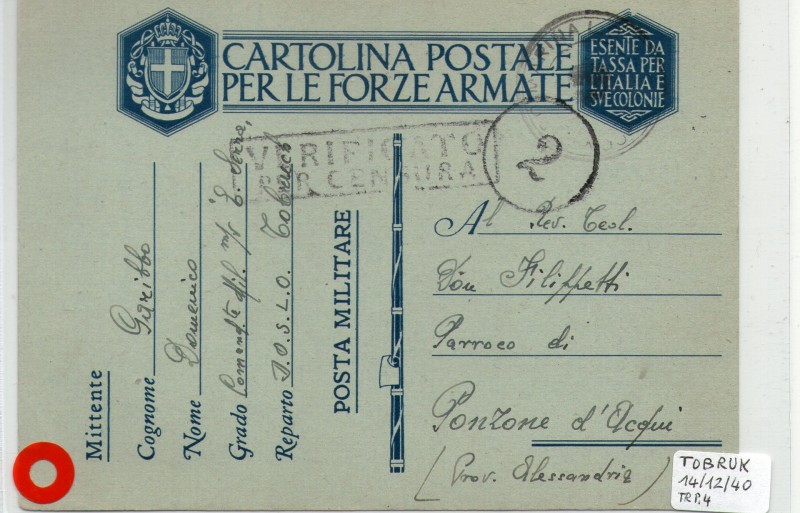 CARTOLINA POSTALE
PER LE FORZE ARMATE
ESENTE DA
TASSA PER
L'ITALIA E
SVE COLONIE
VERIFICATO
PER CENSURA
Mittente
Cognome Garibbo
Nome Domenico
Grado
Reparto
POSTA MILITARE
Al Rev. Teol.
Don Filippetti
Parroco di
Ponzone d'Acqui
(Prov. Alessandria
TOBRUK
14/12/40
TR P.4